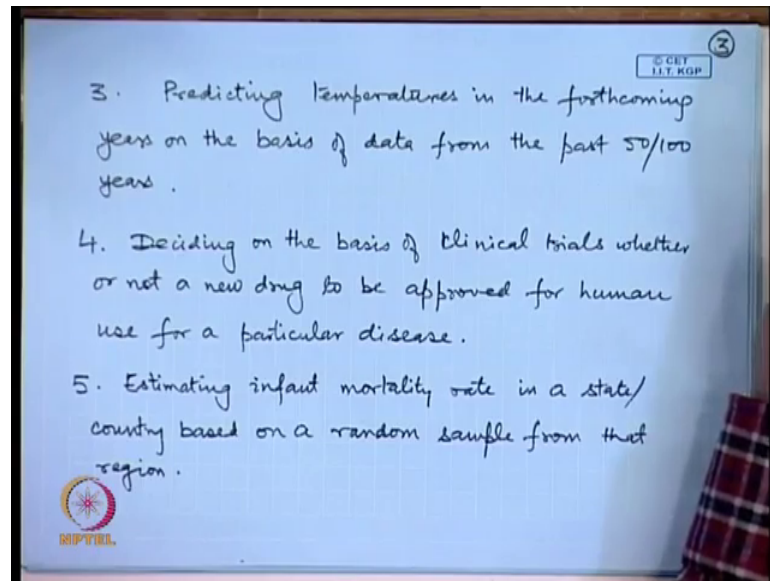 3
© CET
I.I.T. KGP
3. Predicting temperatures in the forthcoming
years on the basis of data from the past 50/100
years.
4. Deciding on the basis of clinical trials whether
or not a new drug to be approved for human
use for a particular disease.
5. Estimating infant mortality rate in a state/
country based on a random sample from that
region.
NPTEL